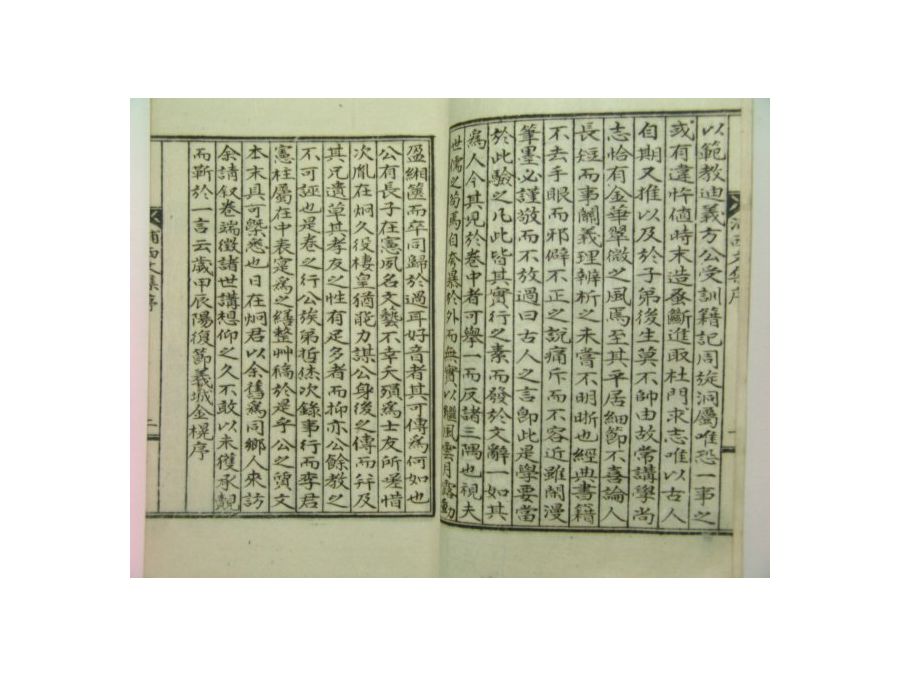 以範教迪義方公受訓籍記周旋洞屬唯恐一事之
或有違忤値時末造廢斷進取杜門求志唯以古人
自期又推以及於子弟後生莫不帥由故常講學尚
志恰有金華翠微之風焉至其平居細節不喜論人
長短而事關義理辨析之未嘗不明晰也經典書籍
不去手眼而邪僻不正之說痛斥而不容近雖閒漫
筆墨必謹敬而不放過曰古人之言卽此是學要當
於此驗之凡此皆其實行之素而發於文辭一如其
爲人今其見於卷中者可擧一而反諸三隅也視夫
世儒之苟焉自夸暴於外而無實以繼風雲月露動
盈緗篋而卒同歸於過耳好音者其可傳爲何如也
公有長子在憲夙名文藝不幸夭殞爲士友所嗟惜
次胤在炯久役棲皇猶能力謀公身後之傳而幷及
其兄遺草其孝友之性有足多者而抑亦公餘教之
不可誣也是卷之行公族弟哲洙次錄事行而李君
憲柱屬在中表寔爲之繕整艸稿於是乎公之質文
本末具可槩悉也日在炯君以余舊爲同鄉人來訪
余請叙卷端徵諸世講想仰之久不敢以未獲承覿
而靳於一言云歲甲辰陽復節義城金榥序
文集序
二